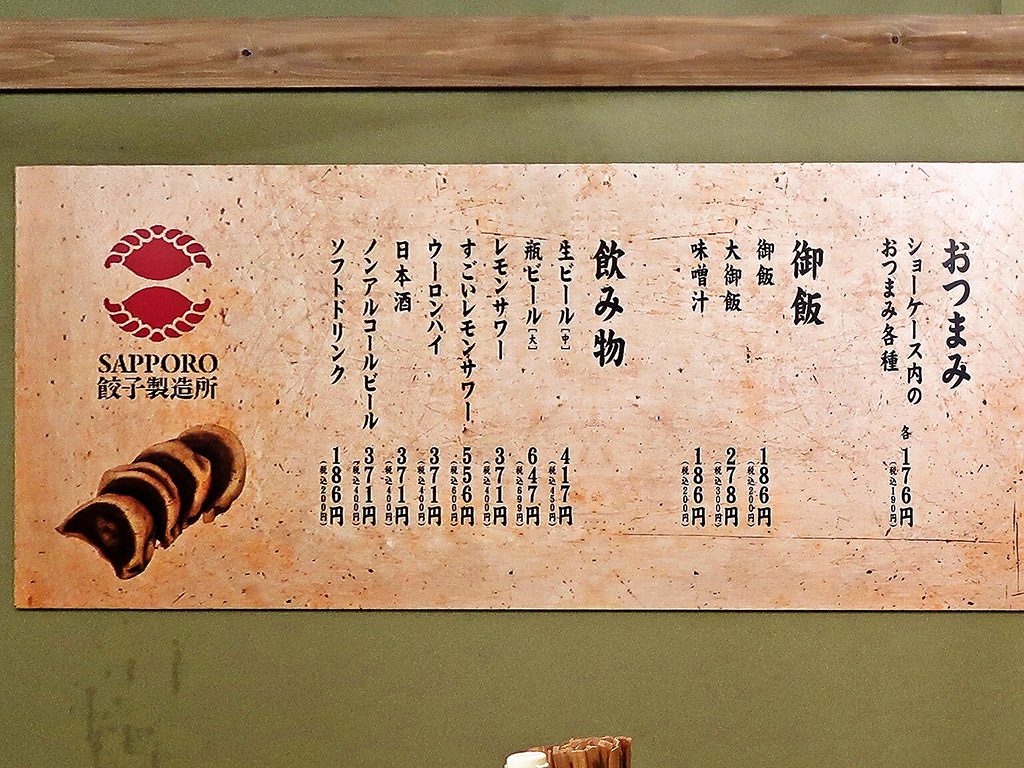 おつまみ
ショーケース内の
おつまみ各種
各176円
(税込190円)
御飯
御飯 186円
(税込200円)
大御飯 278円
(税込300円)
味噌汁 186円
(税込200円)
飲み物
生ビール[中] 417円
(税込450円)
瓶ビール[大] 647円
(税込699円)
レモンサワー 371円
(税込400円)
すごいレモンサワー 556円
(税込600円)
ウーロンハイ 371円
(税込400円)
日本酒 371円
(税込400円)
ノンアルコールビール 371円
(税込400円)
ソフトドリンク 186円
(税込200円)
SAPPORO
餃子製造所